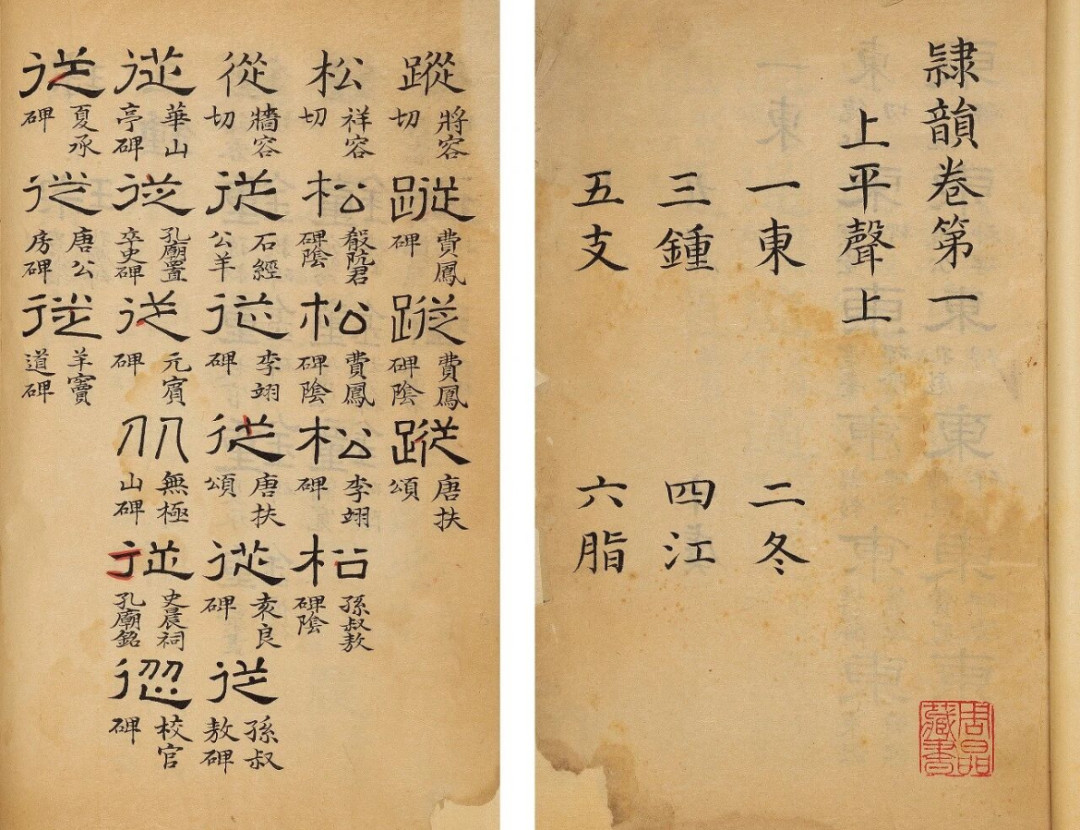 隷韻卷第一
上平聲上
一東 二冬
三鍾 四江
五支 六脂
蹤 將容切 蹤 費鳳碑 蹤 費鳳碑陰 蹤 唐扶頌
松 祥容切 松 殽阬君碑陰 松 費鳳碑陰 松 李翊碑 松 孫叔敖碑陰
從 牆容切 從 石經公羊 從 李翊碑 從 唐扶頌 從 袁良碑 從 孫叔敖碑
從 華山亭碑 從 孔廟置卒史碑 從 元賓碑 从 無極山碑 從 史晨祠孔廟銘 從 校官碑
從 夏承碑 從 唐公房碑 從 羊竇道碑